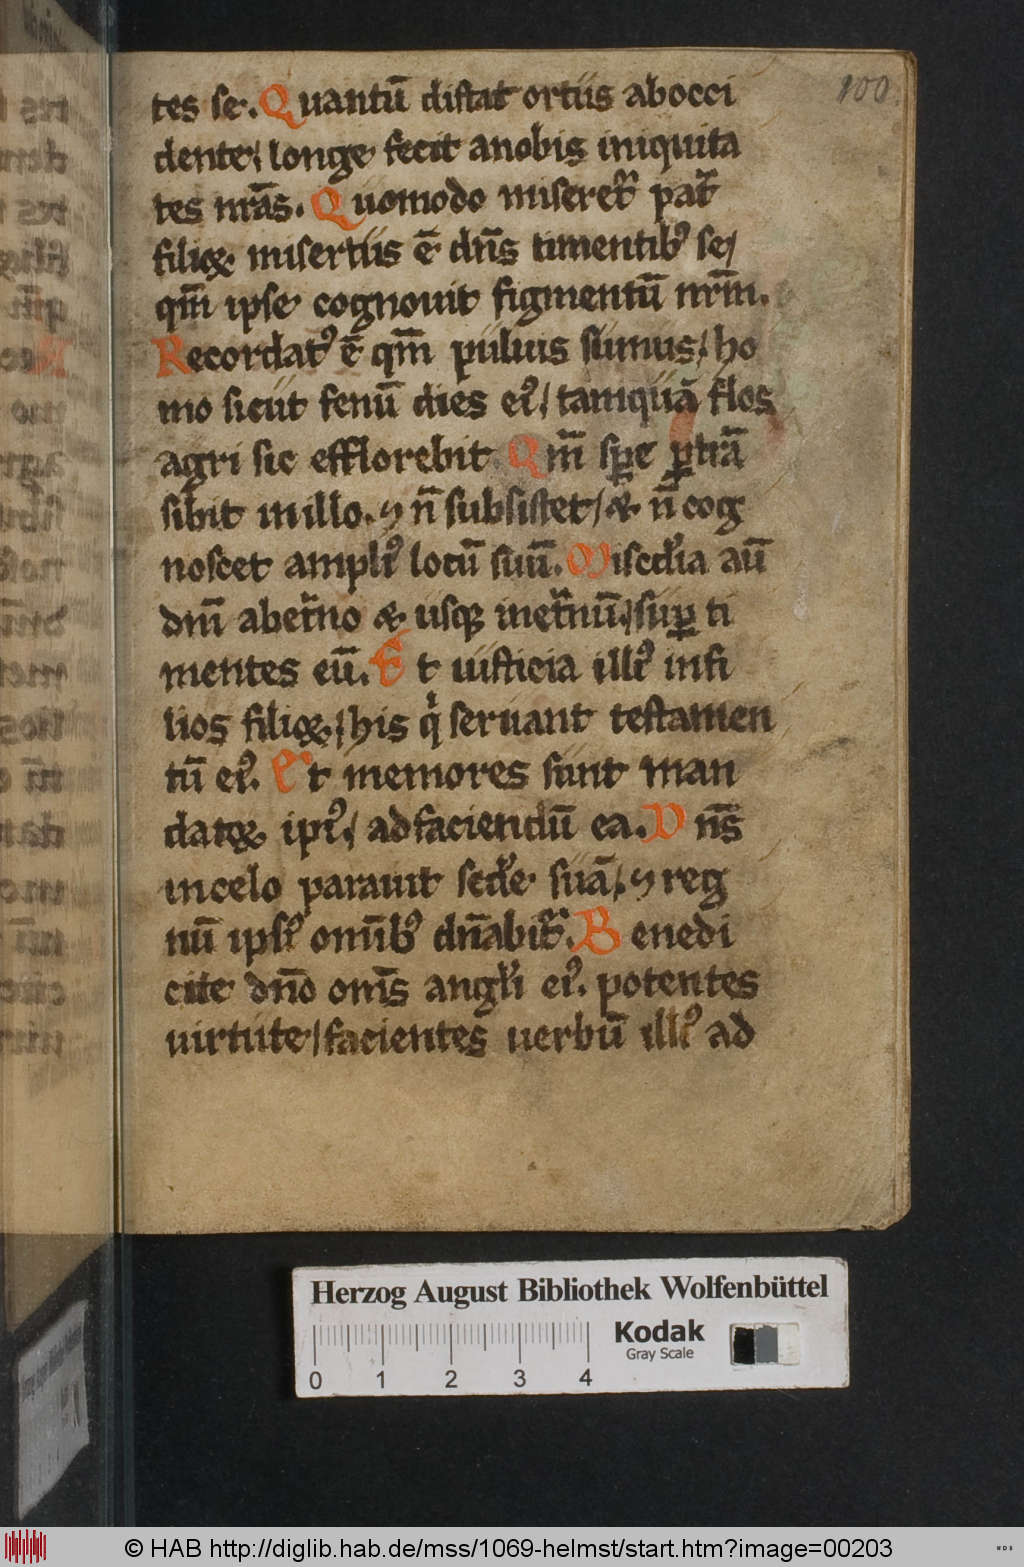 100
tes se. Quantū distat ortus abocci
dente/ longe fecit anobis iniquita
tes nrās. Quomodo miseret᷑ pat᷑
filioꝝ misertus ē dn̄s timentibꝰ se/
qm̄ ipse cognouit figmentū nrm̄.
Recordatꝰ ē qm̄ puluis sumus/ ho
mo sicut fenū dies eiꝰ/ tamquā flos
agri sic efflorebit Qm̄ sp̄c ꝑtrā
sibit inillo. ⁊ n̄ subsistet/ & n̄ cog
noscet ampliꝰ locū suū. Misc̄dia aū
dn̄i abet᷑no & usqꝫ inet᷑nū/ suꝑ ti
mentes eū. Et iusticia illiꝰ infi
lios filioꝝ/ his qͥ seruant testamen
tū eiꝰ. Et memores sunt man
datoꝝ ipiꝰ/ adfaciendū ea. Dn̄s
incelo parauit sedē suā/ ⁊ reg
nū ipsiꝰ omībꝰ dn̄abit᷑. Benedi
cite dn̄o oms̄ angl̄i eiꝰ. potentes
uirtute/ facientes uerbū illiꝰ ad
Herzog August Bibliothek Wolfenbüttel
Kodak
Gray Scale
0 1 2 3 4
© HAB http://diglib.hab.de/mss/1069-helmst/start.htm?image=00203